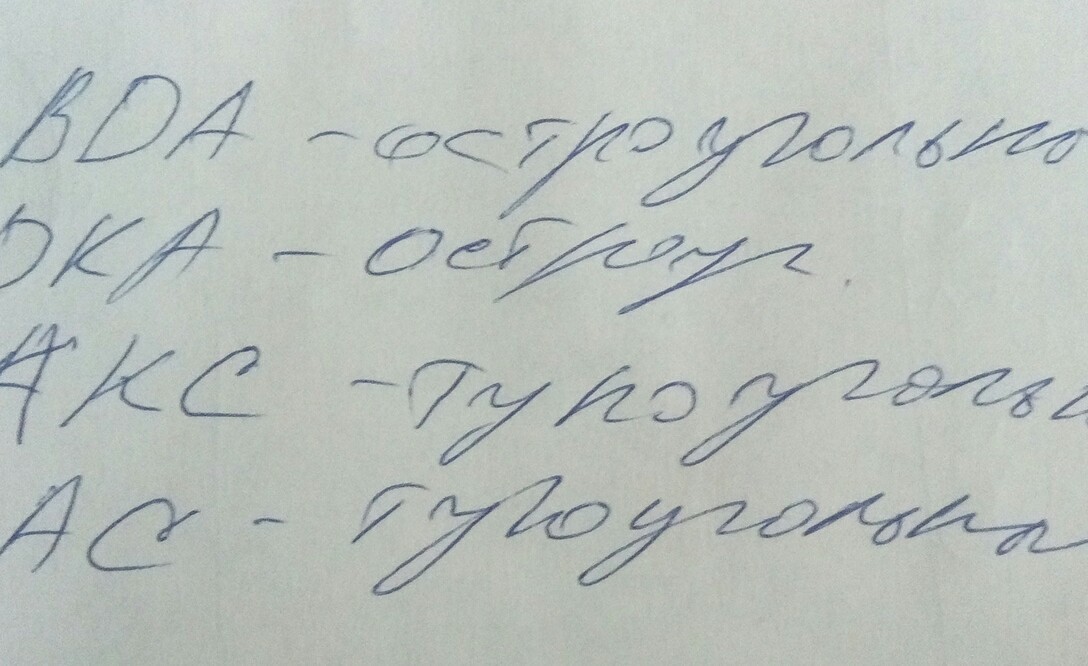 BDA - остроугольно
DKA - остроуг.
АКС - тупоуголь
АС - тупоугольна